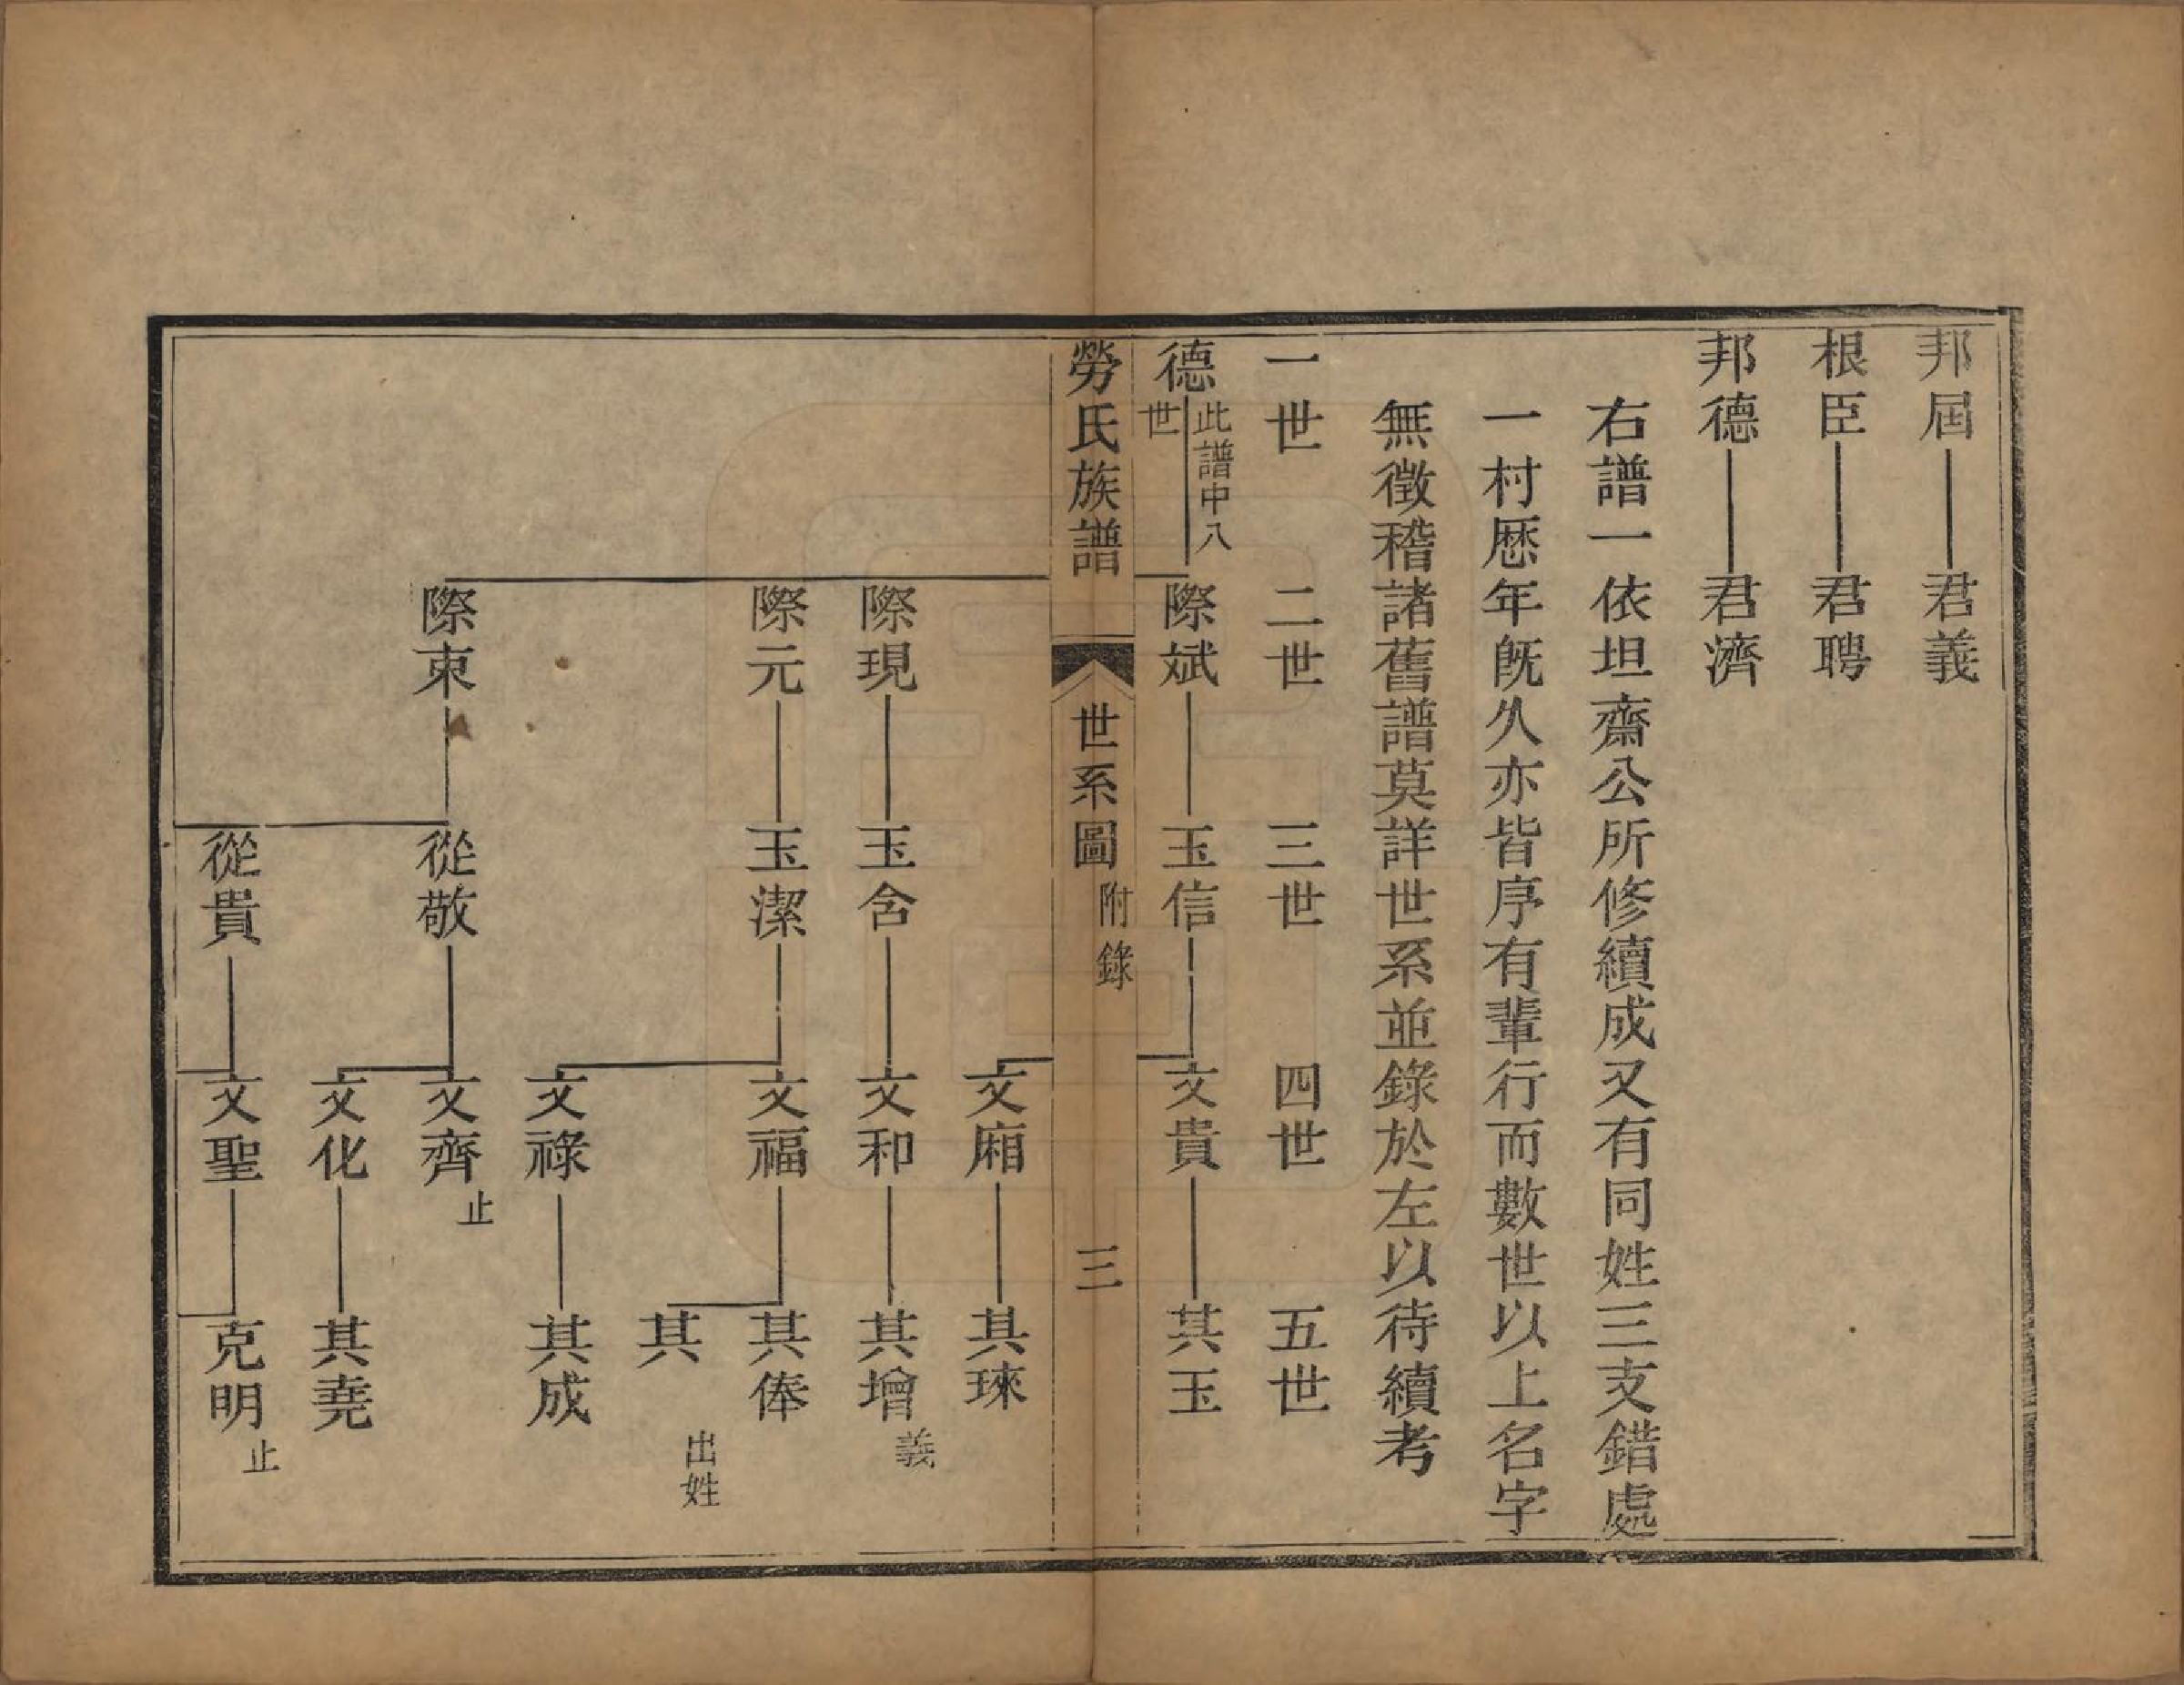 邦屆 君義
根臣 君聘
邦德 君濟
右譜一依坦齋公所修續成又有同姓三支錯處
一村歷年既久亦皆序有輩行而數世以上名字
無徵稽諸舊譜莫詳世系並錄於左以待續考
一世 二世 三世 四世 五世
德 此譜中八世 際斌 玉信 文貴 其玉
勞氏族譜 世系圖 附錄 三
文廂 其琜
際現 玉含 文和 其增 義
際元 玉潔 文福 其俸
其 出姓
文祿 其成
際東 從敬 文齊 止
文化 其堯
從貴 文聖 克明 止